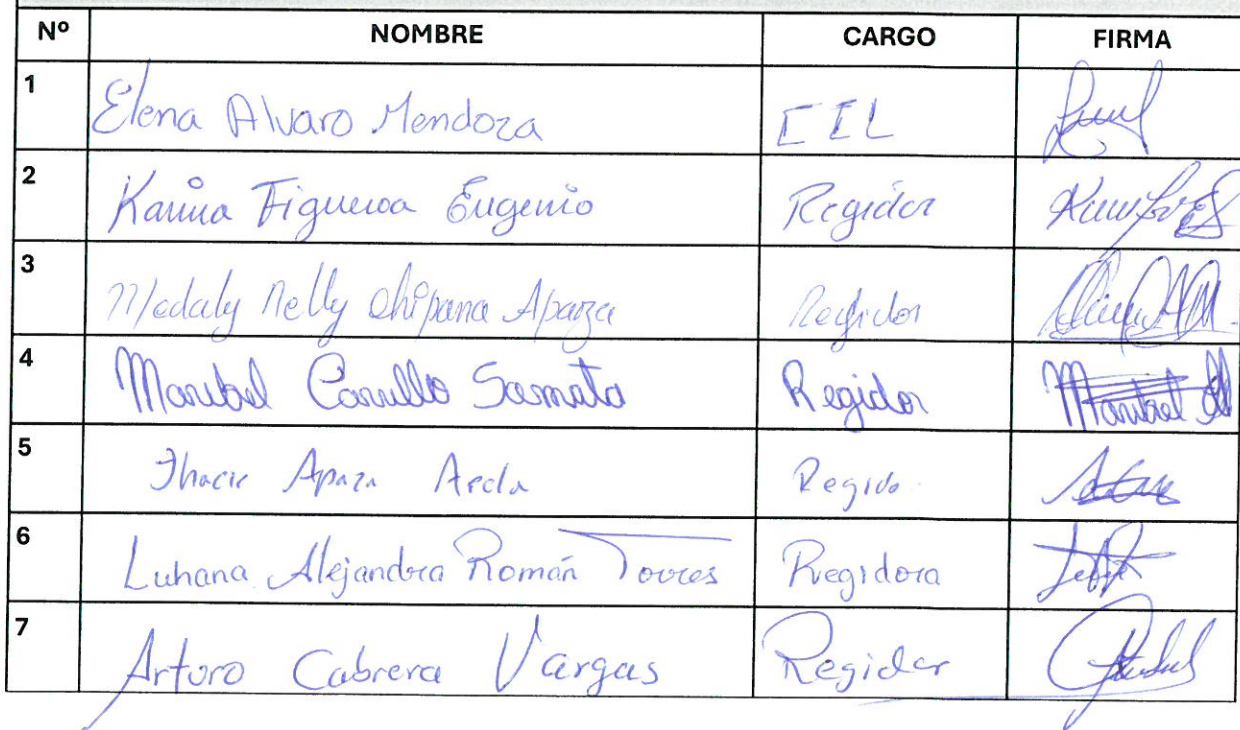 Nº NOMBRE CARGO FIRMA
1 Elena Alvaro Mendoza CIL
2 Karina Figueroa Eugenio Regidor
3 Medaly Nelly Chipana Apaza Regidor
4 Maribel Carrullo Samata Regidor Maribel
5 Apaza Regido
6 Luhana Alejandra Román Torres Regidora
7 Arturo Cabrera Vargas Regidor